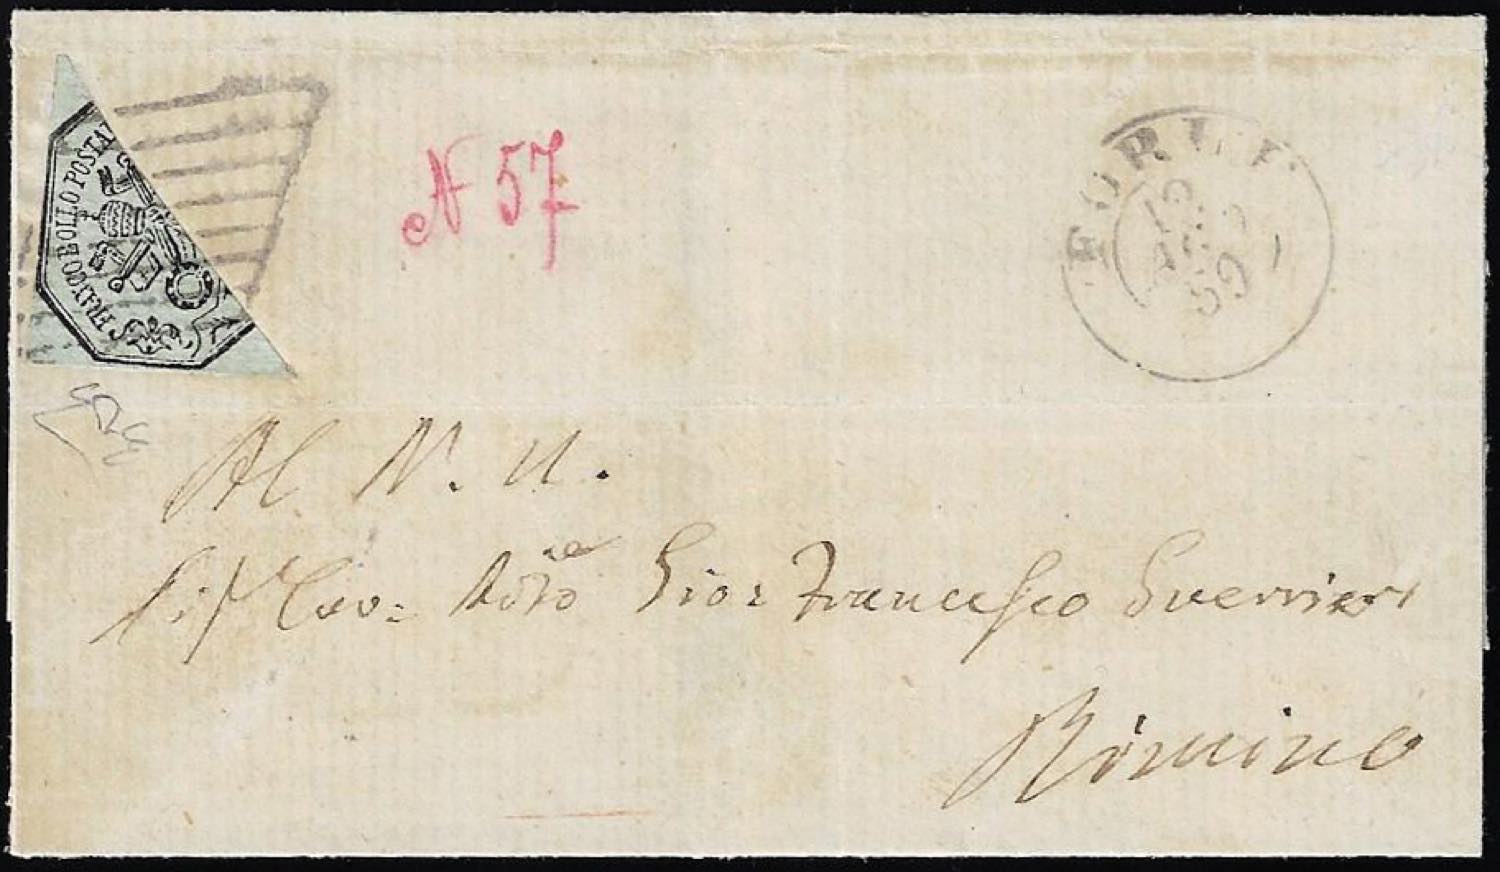 FRANCO BOLLO POSTAL
N 57
FORLI
12
59
Al N. U.
Cav: Gio: Francesco Guerrieri
Rimino